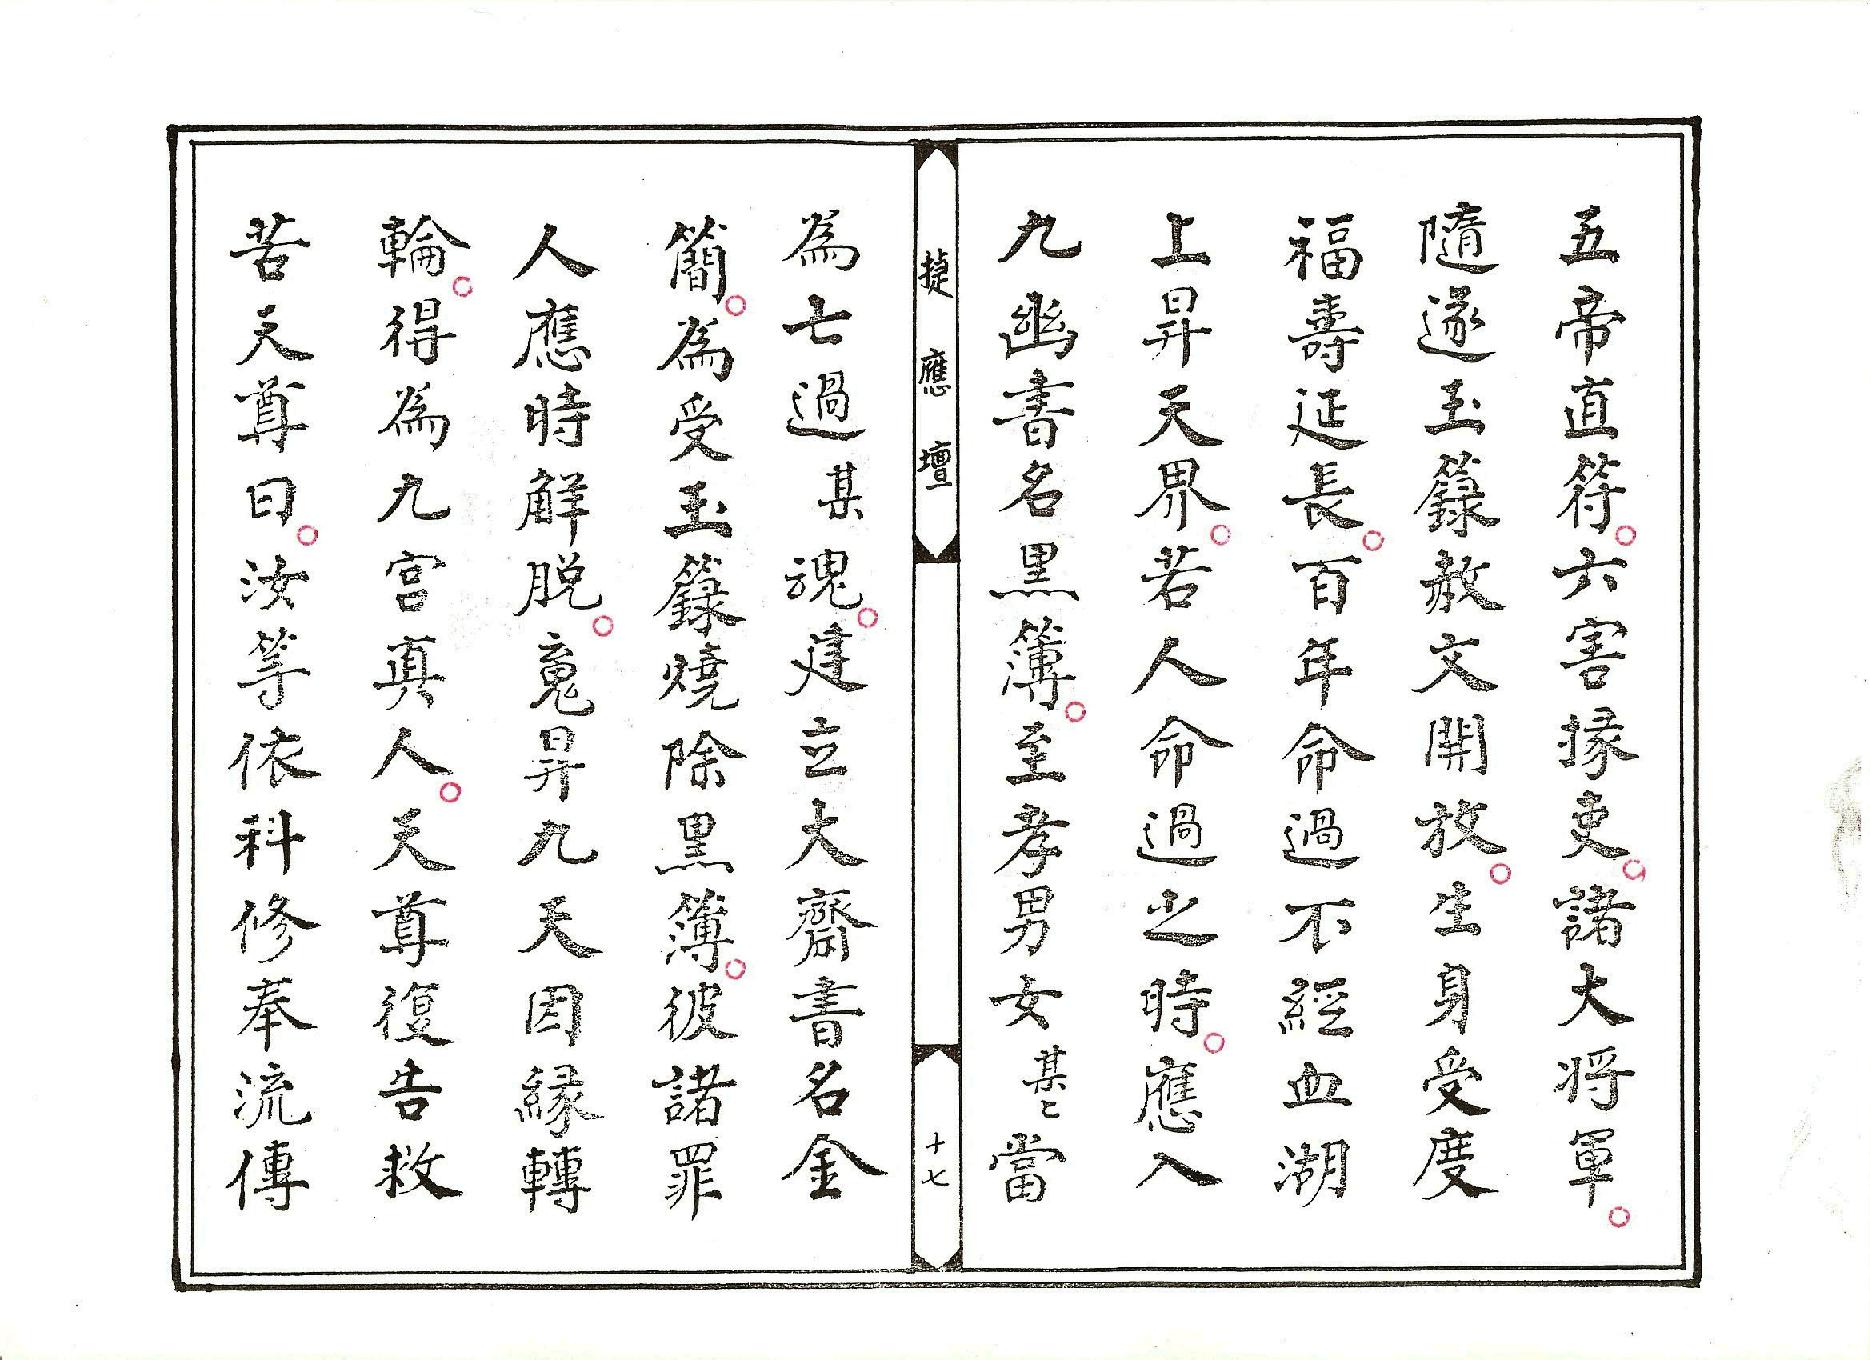 五帝直符。六害掾吏。諸大將軍。
隨遂玉籙赦文開放。生身受度
福壽延長。百年命過不經血湖
上昇天界。若人命過之時。應入
九幽書名黑簿。至孝男女某々當
捷應壇
十七
為亡過某魂。建立大齋書名金
簡。為受玉籙燒除黑簿。彼諸罪
人應時解脫。䰟昇九天因緣轉
輪。得為九宮真人。天尊復告救
苦天尊曰。汝等依科修奉流傳